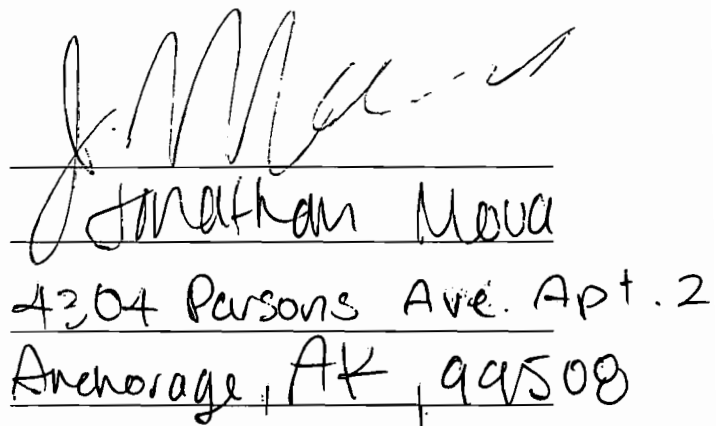 Jonathan Moua
4304 Parsons Ave. Apt. 2
Anchorage, AK, 99508